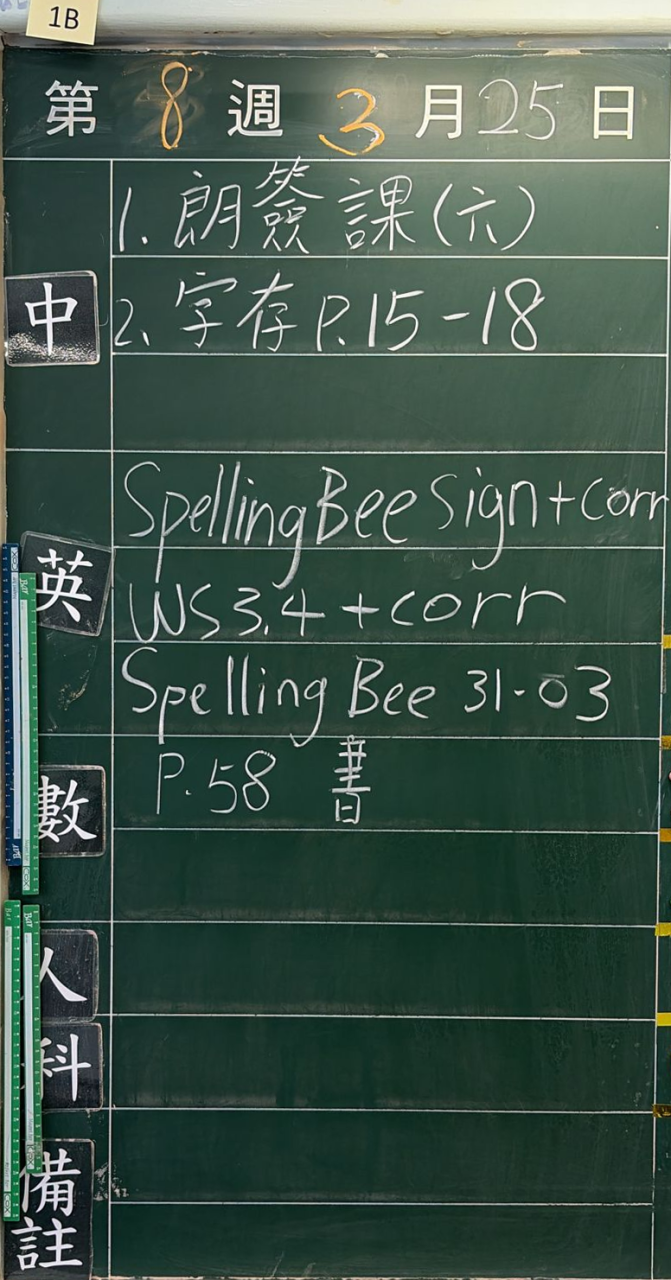 1B
第 8 週 3 月 25 日
中
1. 朗簽課(六)
2. 字存 P.15-18
英
Spelling Bee Sign + corr
WS 3.4 + corr
Spelling Bee 31-03
數
P.58 書
人
科
備註